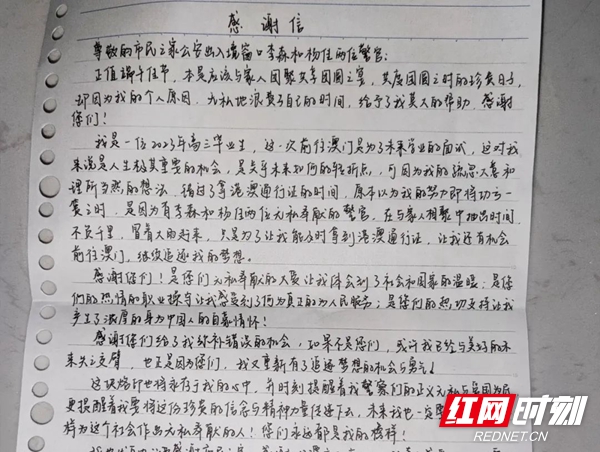 感谢信
尊敬的市民之家公安出入境窗口李森和杨佳两位警官:
正值端午佳节,本是应该与家人团聚共享团圆之宴,共度团圆之时的珍贵日子,
却因为我的个人原因,无私地浪费了自己的时间,给予了我莫大的帮助,感谢
您们!
我是一位2023年高三毕业生,这一次前往澳门是为了未来学业的面试,这对我
来说是人生极其重要的机会,是关乎未来如何的转折点,可因为我的疏忽大意和
理所当然的想法,错过了拿港澳通行证的时间,原本以为我的努力即将功亏一
篑之时,是因为有李森和杨佳两位无私奉献的警官,在与家人相聚中抽出时间,
不负千里,冒着大雨赶来,只是为了让我能及时拿到港澳通行证,让我还有机会
前往澳门,继续追逐我的梦想。
感谢您们!是您们无私奉献的大爱让我体会到了社会和国家的温暖;是您
们的热情的职业操守让我感受到了何为真正的为人民服务;是您们的热切支持让我
产生了浓厚的身为中国人的自豪情怀!
感谢您们给了我弥补错误的机会,如果不是您们,或许我已经与美好的未
来失之交臂,也正是因为您们,我又重新有了追逐梦想的机会与勇气!
这块烙印也将永存于我的心中,并时刻提醒着我警察们的正义无私与
更提醒着我要将这份珍贵的信念与精神力量传递下去,未来我也一定
样为这个社会作出无私奉献的人!您们永远都是我的榜样!
红网时刻
REDNET.CN